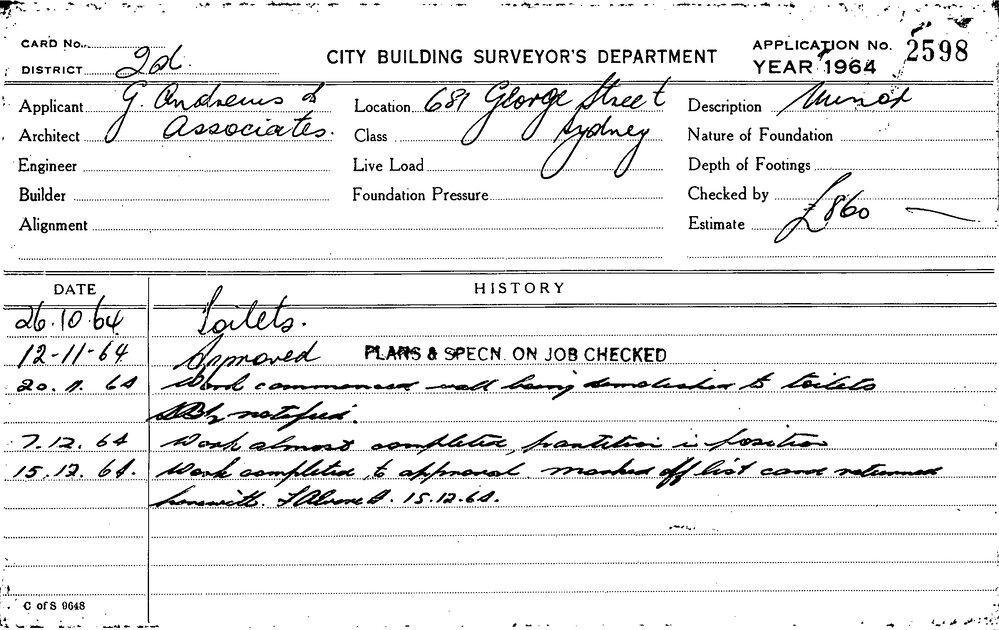 CARD No.
DISTRICT 2d.
CITY BUILDING SURVEYOR'S DEPARTMENT
APPLICATION No. 2598
YEAR 1964
Applicant G. Andrews &
Architect Associates.
Engineer
Builder
Alignment
Location 681 George Street
Class Sydney
Live Load
Foundation Pressure
Description Minor
Nature of Foundation
Depth of Footings
Checked by
Estimate £860
DATE HISTORY
26.10.64 Toilets.
12-11-64 Approved PLANS & SPECN. ON JOB CHECKED
20.11.64 Work commenced wall being demolished to toilets
notified.
7.12.64 Work almost completed, partition in position
15.12.64. Work completed to approval. marked off list card returned
herewith. 15.12.64.
C of S 9648